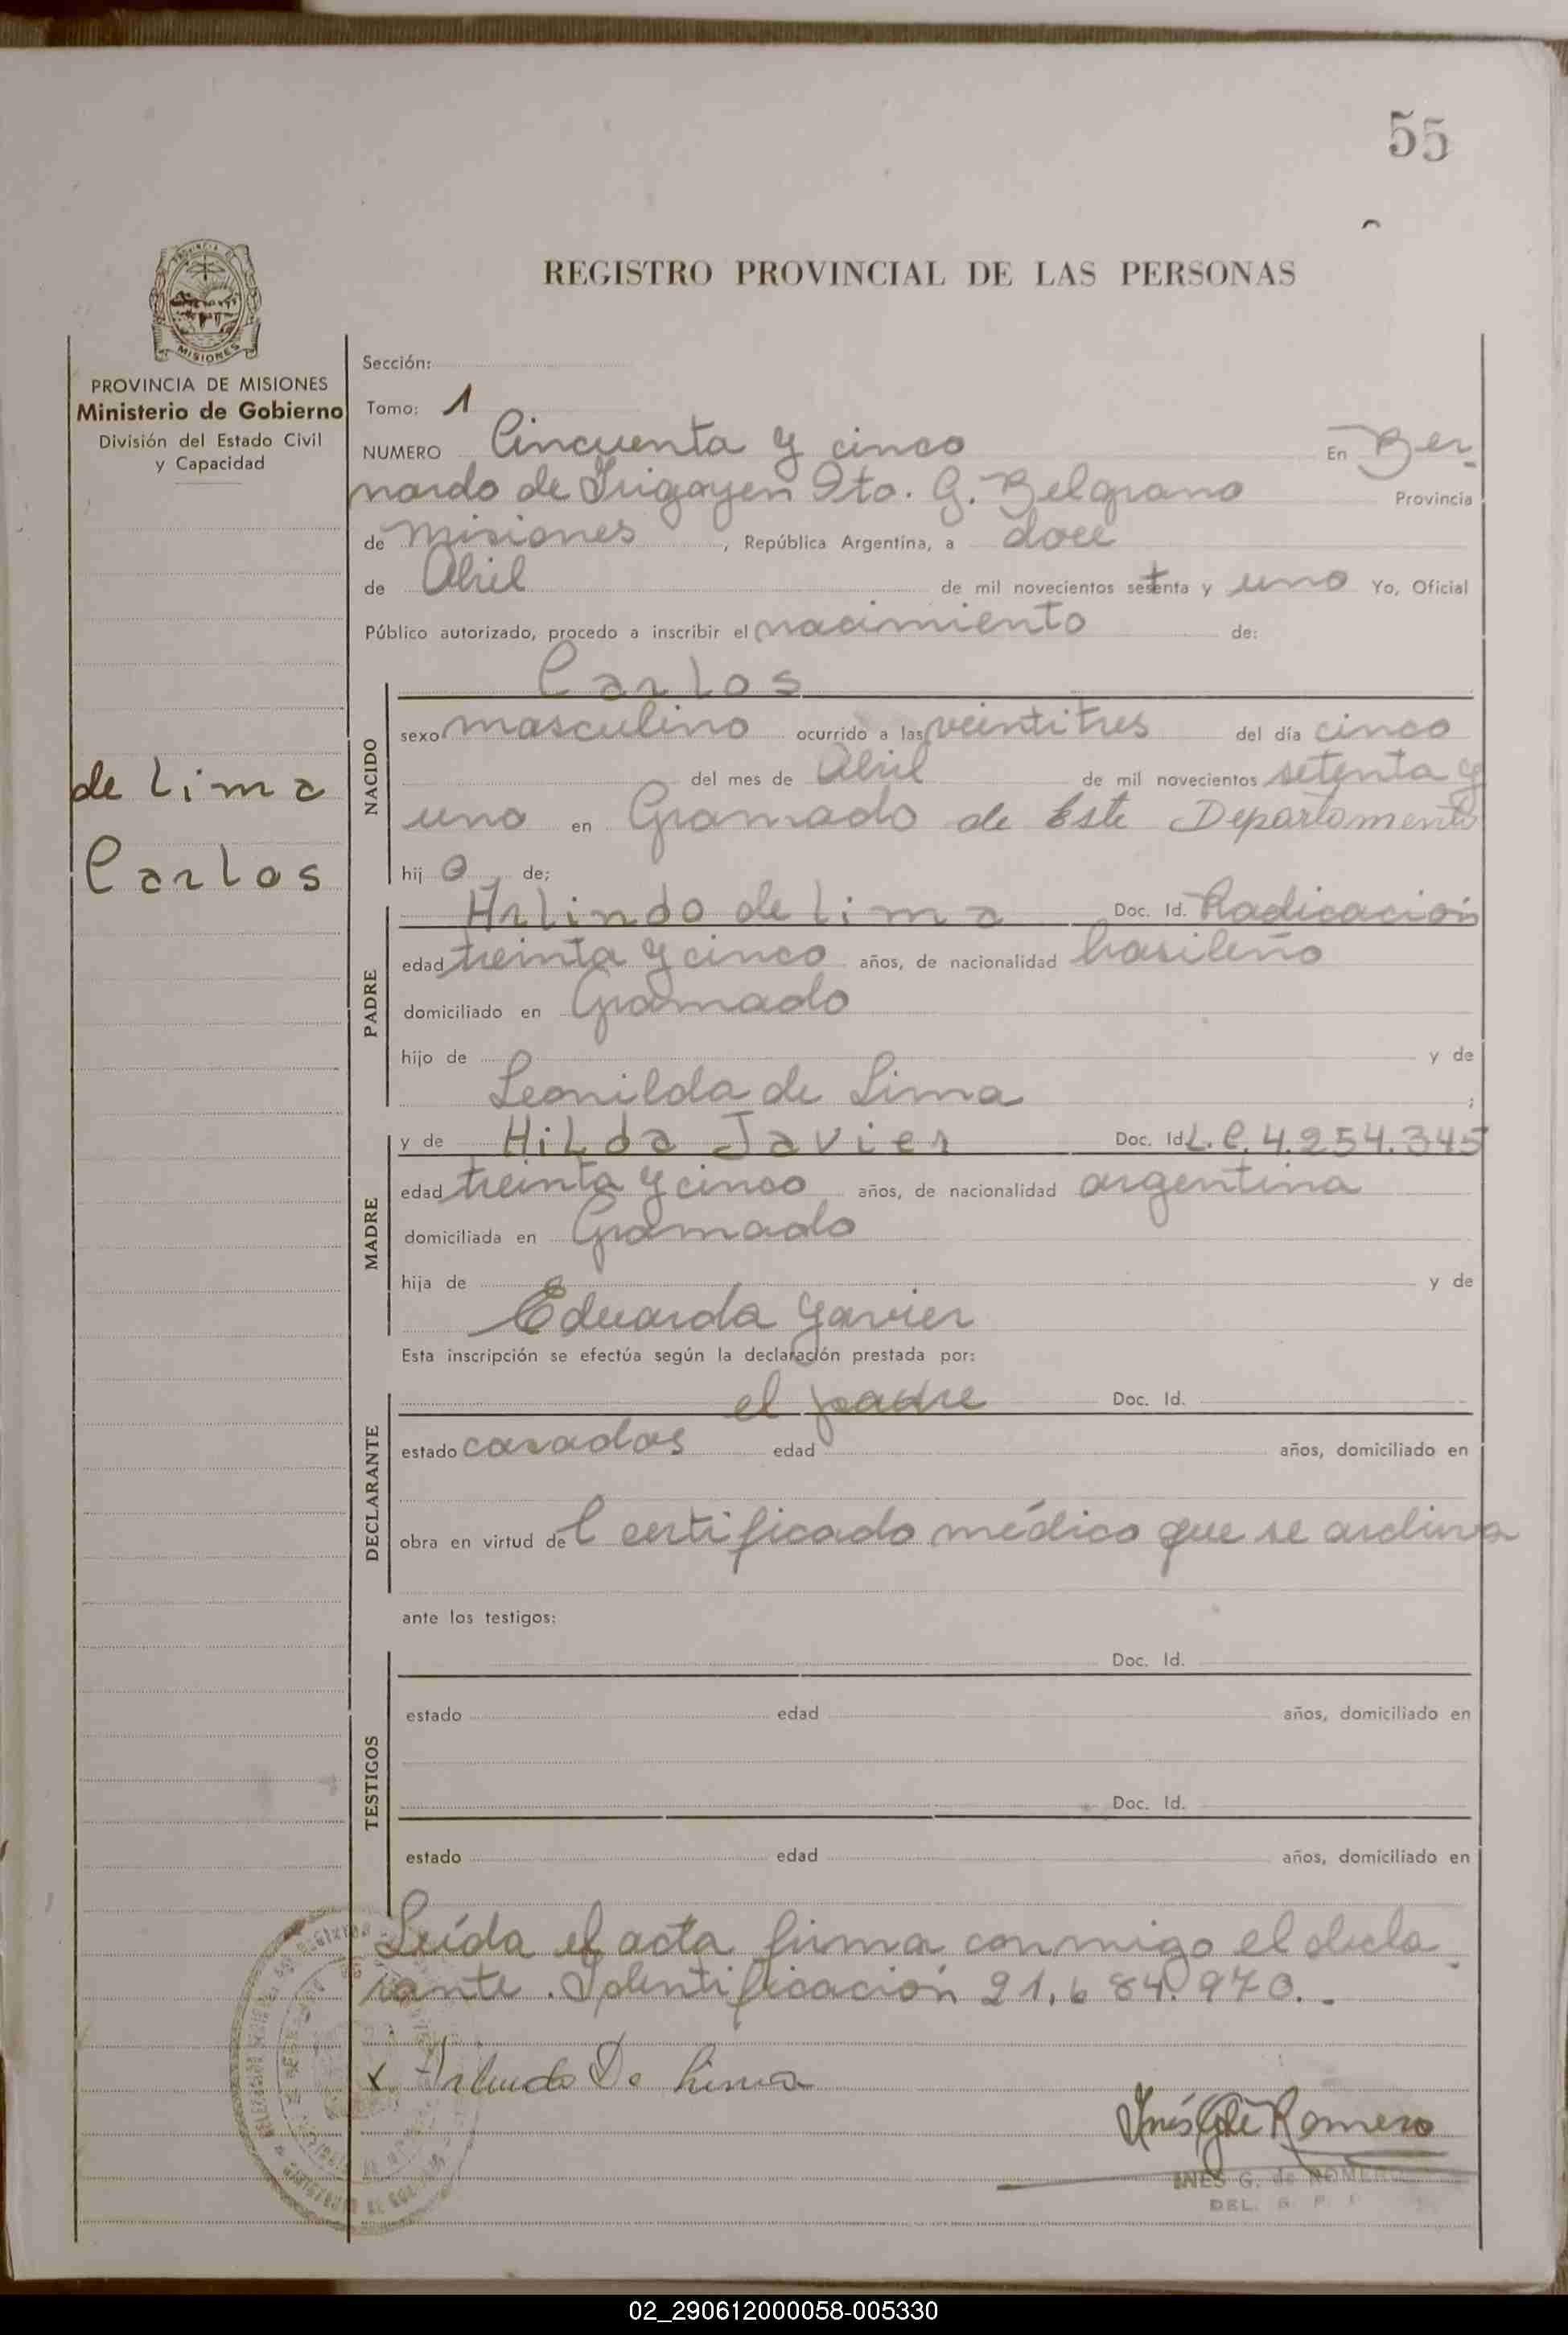 55
REGISTRO PROVINCIAL DE LAS PERSONAS
MISIONES
PROVINCIA DE MISIONES
Ministerio de Gobierno
División del Estado Civil
y Capacidad
de Lima
Carlos
Sección:
Tomo: 1
NUMERO Cincuenta y cinco En Ber
nardo de Irigoyen Dto. G. Belgrano Provincia
de Misiones, República Argentina, a doce
de Abril de mil novecientos setenta y uno Yo, Oficial
Público autorizado, procedo a inscribir el nacimiento de:
NACIDO
Carlos
sexo masculino ocurrido a las veintitres del día cinco
del mes de Abril de mil novecientos setenta y
uno en Gramado de Este Departamento
hijo de:
PADRE
Arlindo de Lima Doc. Id. Radicación
edad treinta y cinco años, de nacionalidad brasileño
domiciliado en Gramado
hijo de y de
Leonilda de Lima ;
MADRE
y de Hilda Javier Doc. Id. L.C. 4.254.345
edad treinta y cinco años, de nacionalidad argentina
domiciliada en Gramado
hija de y de
Eduarda Yavier
Esta inscripción se efectúa según la declaración prestada por:
DECLARANTE
el padre Doc. Id.
estado casados edad años, domiciliado en
obra en virtud del certificado médico que se archiva
ante los testigos:
TESTIGOS
Doc. Id.
estado edad años, domiciliado en
Doc. Id.
estado edad años, domiciliado en
Leída el acta firma conmigo el decla
rante. Identificación 21.684.970.-
x Arlindo De Lima
Inés G de Romero
INES G. de ROMERO
DEL.
02_290612000058-005330